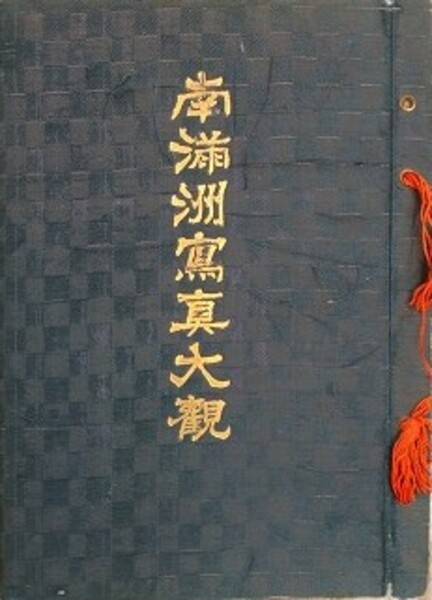 南滿洲寫真大觀